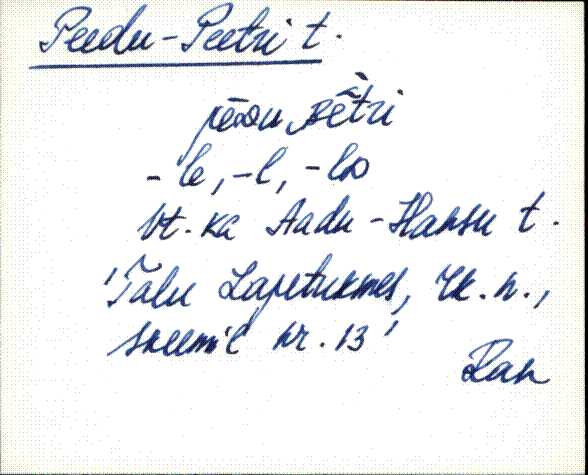 Peedu-Peetri t.
-le, -l, -lo
Vt. ka Aadu-Hansu t.
'Talu Lapetukmes, rk. n.,
skeemil nr. 13'
Ran